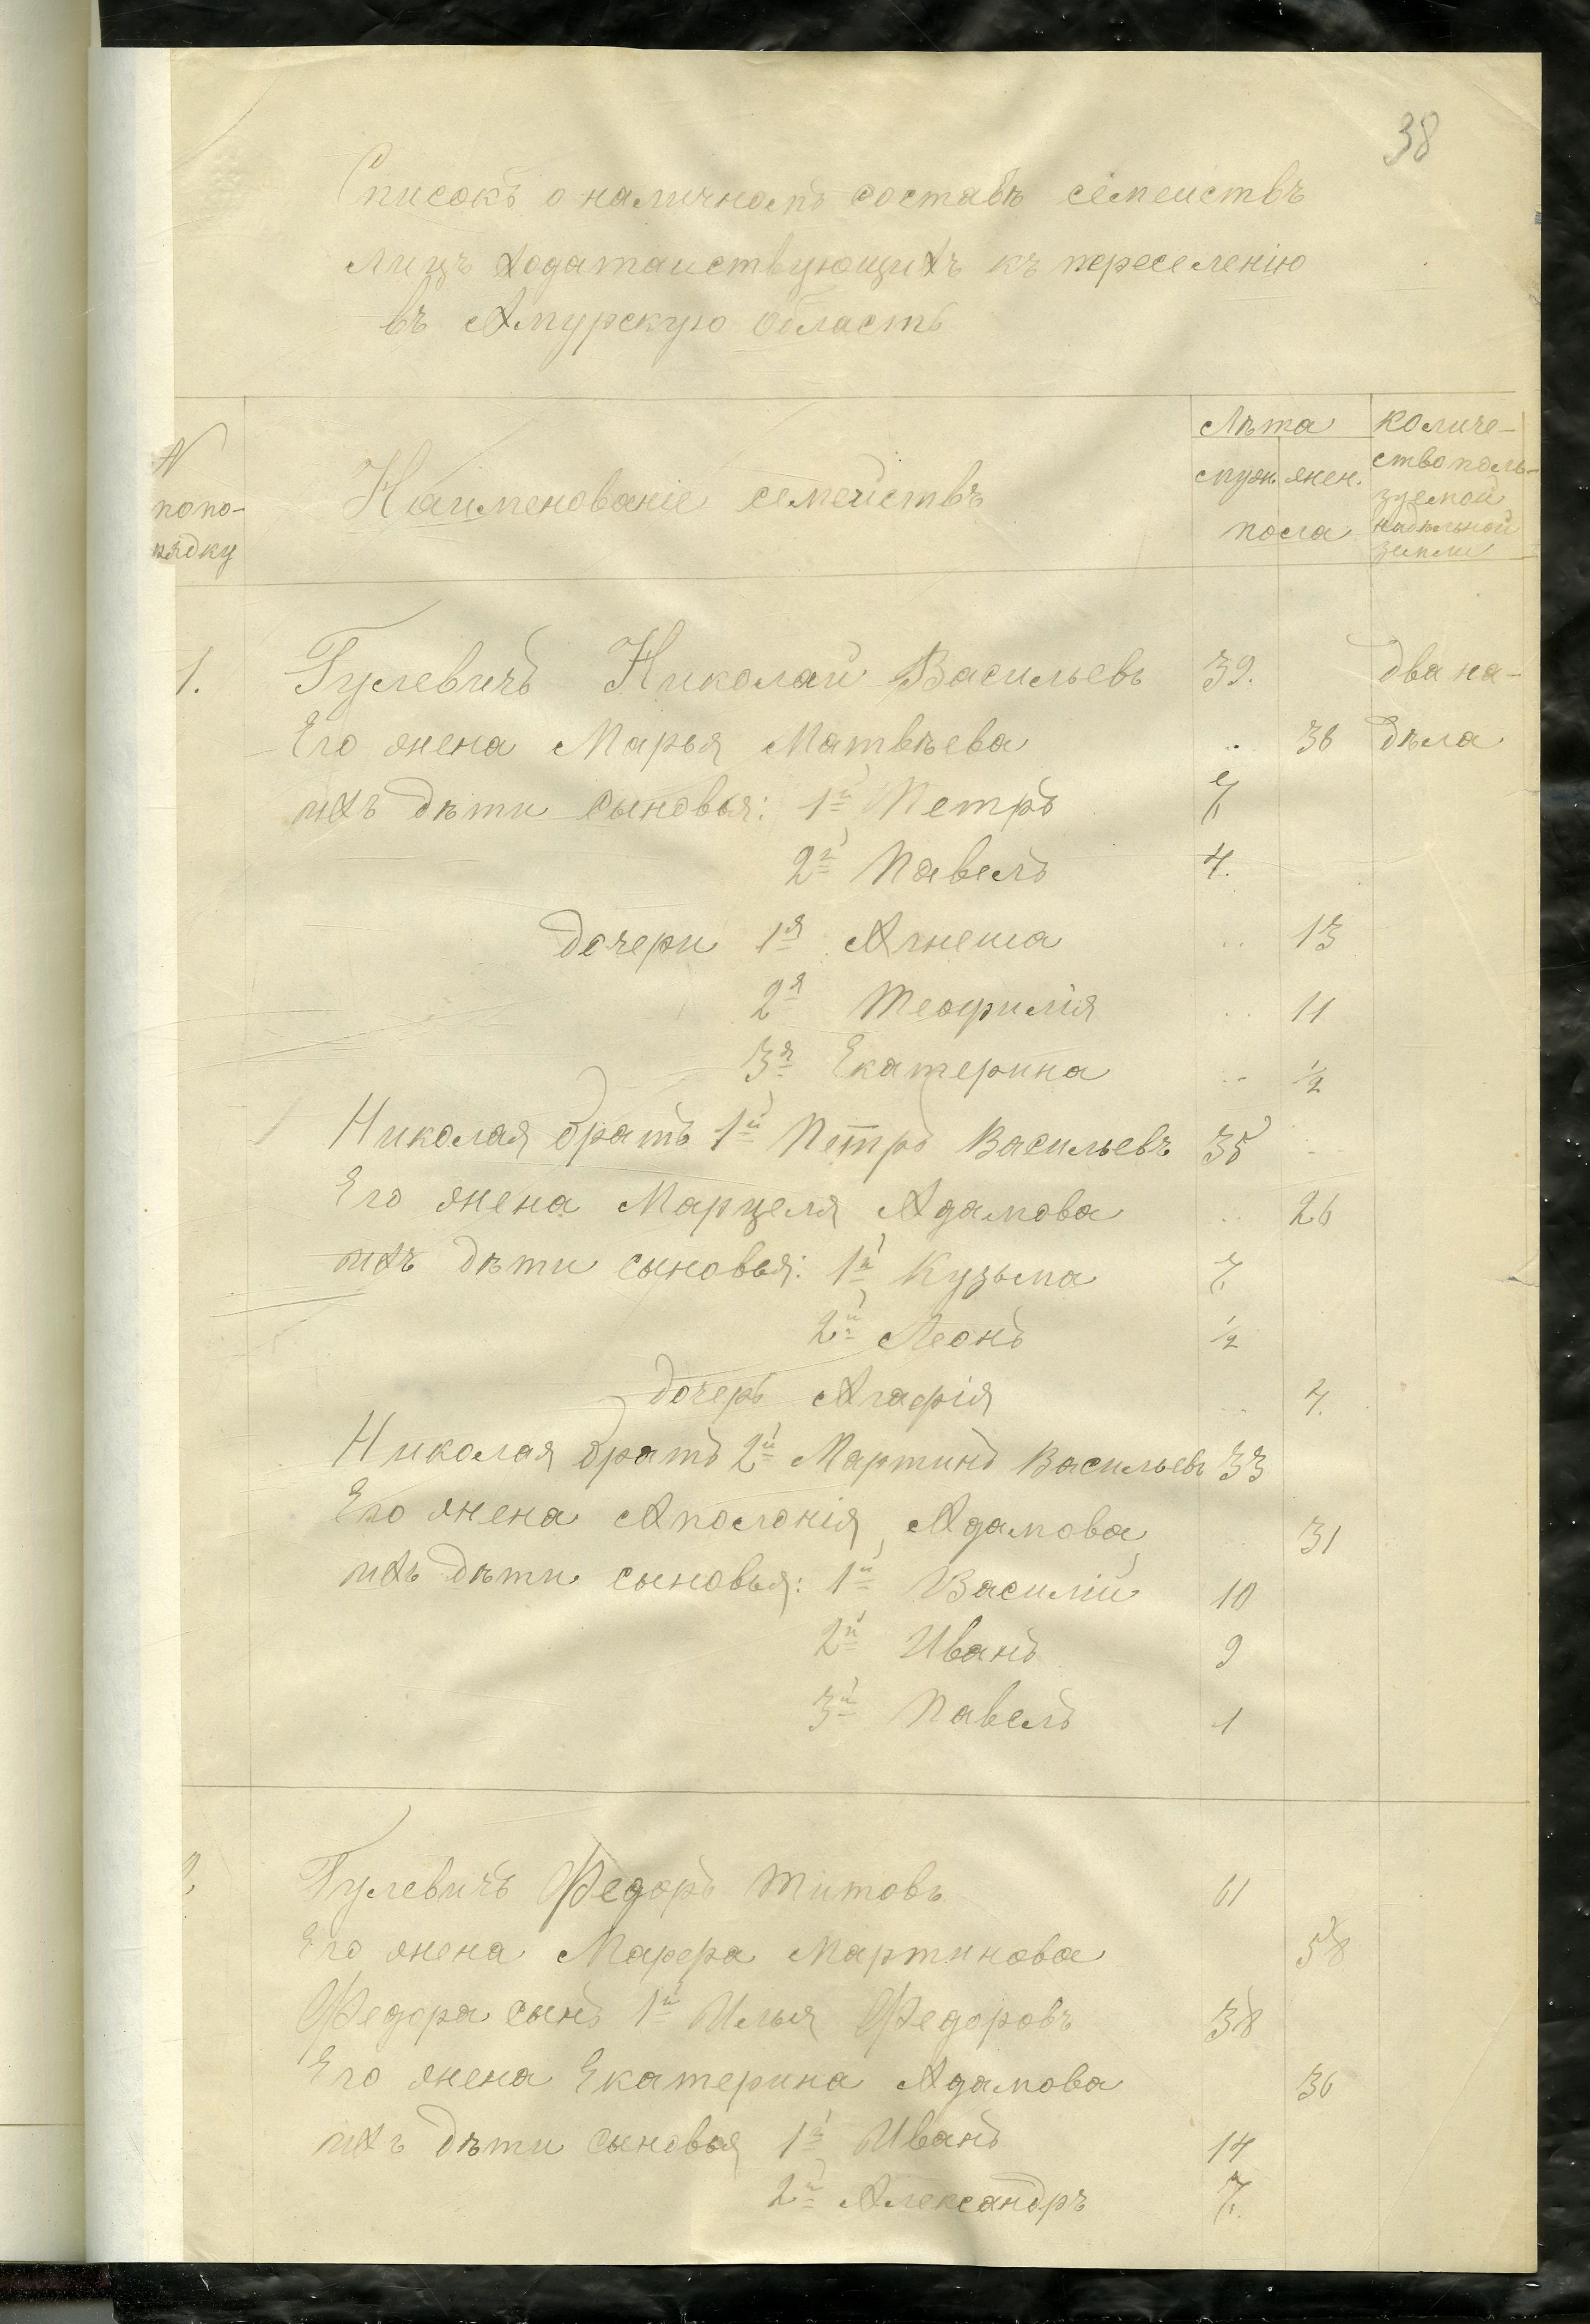 38
Списокъ о наличномъ составѣ семействъ
лицъ ходатайствующихъ къ переселенію
въ Амурскую область
№
по по-
рядку
Наименованіе семействъ
Лѣта
муж. жен.
пола
Количе-
ство поль-
зуемой
надѣльной
земли
1. Гулевичъ Николай Васильевъ 39. два на-
Его жена Марья Матвѣева 36 дѣла
ихъ дѣти сыновья: 1й Петръ
2й Павелъ 4.
дочери 1я Агнеша 13
2я Теофилія 11
3я Екатерина ½
Николая братъ 1й Петръ Васильевъ 35
Его жена Марцеля Адамова 26
ихъ дѣти сыновья: 1й Кузьма 7
2й Леонъ ½
дочерь Агафія 4.
Николая братъ 2й Мартинъ Васильевъ 33
Его жена Аполонія Адамова 31
ихъ дѣти сыновья: 1й Василій 10
2й Иванъ 9
3й Павелъ 1
2. Гулевичъ Федоръ Титовъ 61
Его жена Марфа Мартинова 58
Федора сынъ 1й Илья Федоровъ 38
Его жена Екатерина Адамова 36
ихъ дѣти сыновья 1й Иванъ 14
2й Александръ 7.